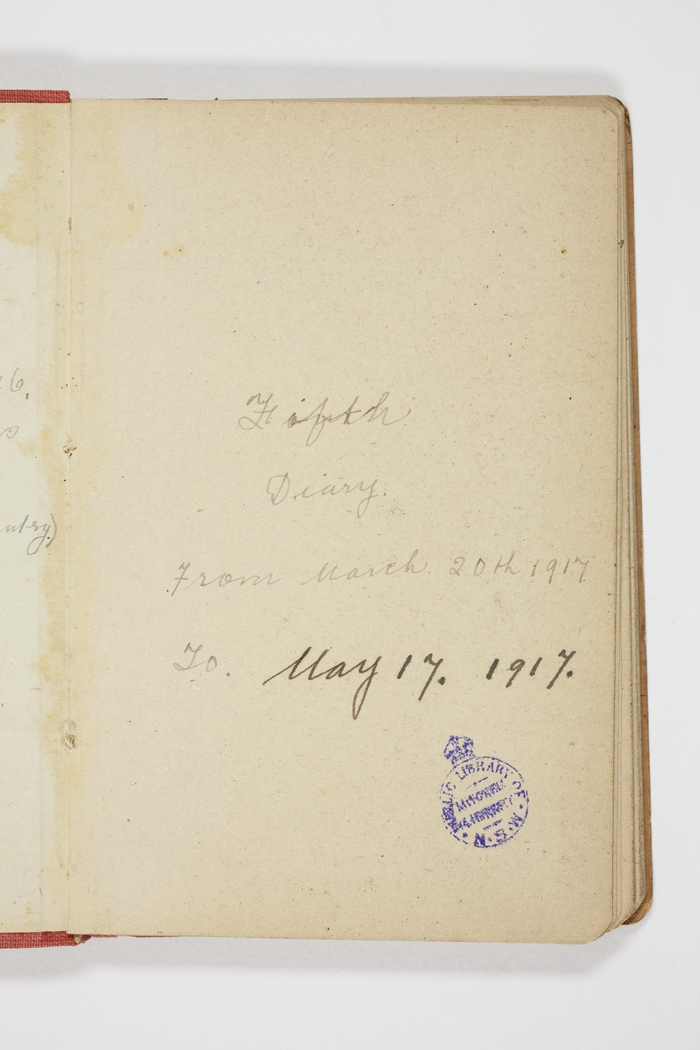 Fifth
Diary.
From March. 20th 1917
To. May 17. 1917.
PUBLIC LIBRARY OF N.S.W.
MITCHELL
LIBRARY